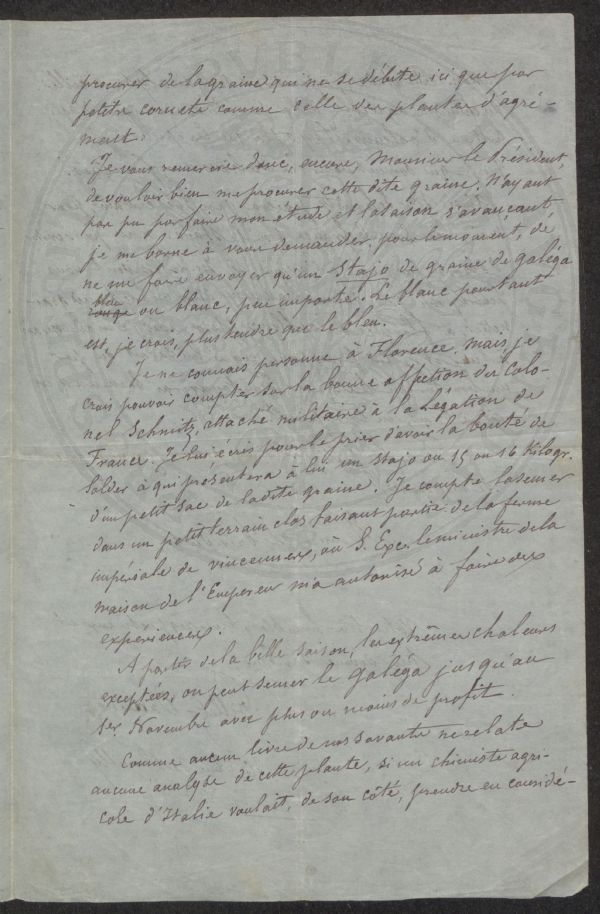 procurer de la graine qui ne se débite ici que par
petits cornets comme celle des plantes d'agré-
ment.
Je vous remercie donc, encore, Monsieur le Président,
de vouloir bien me procurer cette dite graine. N'ayant
pas pu parfaire mon étude et la saison s'avançant,
je me borne à vous demander pour le moment, de
ne me faire envoyer qu'un stajo de graine de galéga
rouge bleu ou blanc, peu importe. Le blanc pourtant
est, je crois, plus tendre que le bleu.
Je ne connais personne à Florence, mais je
crois pouvoir compter sur la bonne affection du Colo-
nel Schmitz, attaché militaire à la Légation de
France. Je lui écris pour le prier d'avoir la bonté de
solder à qui présentera à lui un stajo ou 15 ou 16 Kilogr.
d'un petit sac de ladite graine. Je compte la semer
dans un petit terrain clos faisant partie de la ferme
impériale de Vincennes, où S. Exc. le ministre de la
maison de l'Empereur m'a autorisé à faire des
expériences.
A partir de la belle saison, les extrêmes chaleurs
exceptées, on peut semer le galéga jusqu'au
1er Novembre avec plus ou moins de profit.
Comme aucun livre de nos savants ne relate
aucune analyse de cette plante, si un chimiste agri-
cole d'Italie voulait, de son côté, prendre en considé-